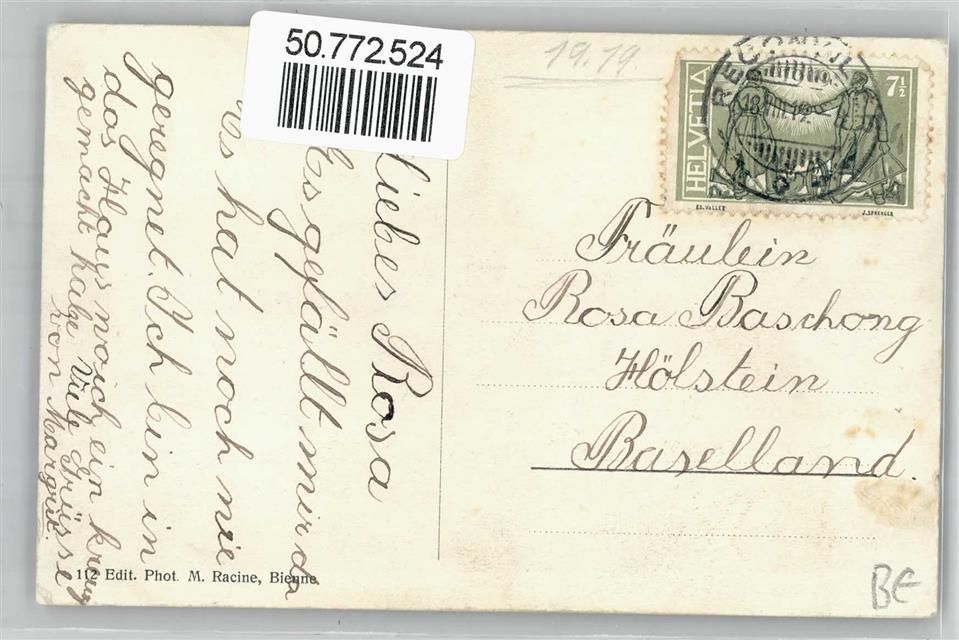 50.772.524
19.19.
HELVETIA
7½
ED. VALLET
J. SPRENGER
Liebes Rosa
Es gefällt mir da
Es hat noch nie
geregnet. Ich bin in
das Haus wo ich ein kranz
gemacht habe Viele Grüsse
von Margrit.
Fräulein
Rosa Baschong
Hölstein
Baselland.
112 Edit. Phot. M. Racine, Bienne
BE